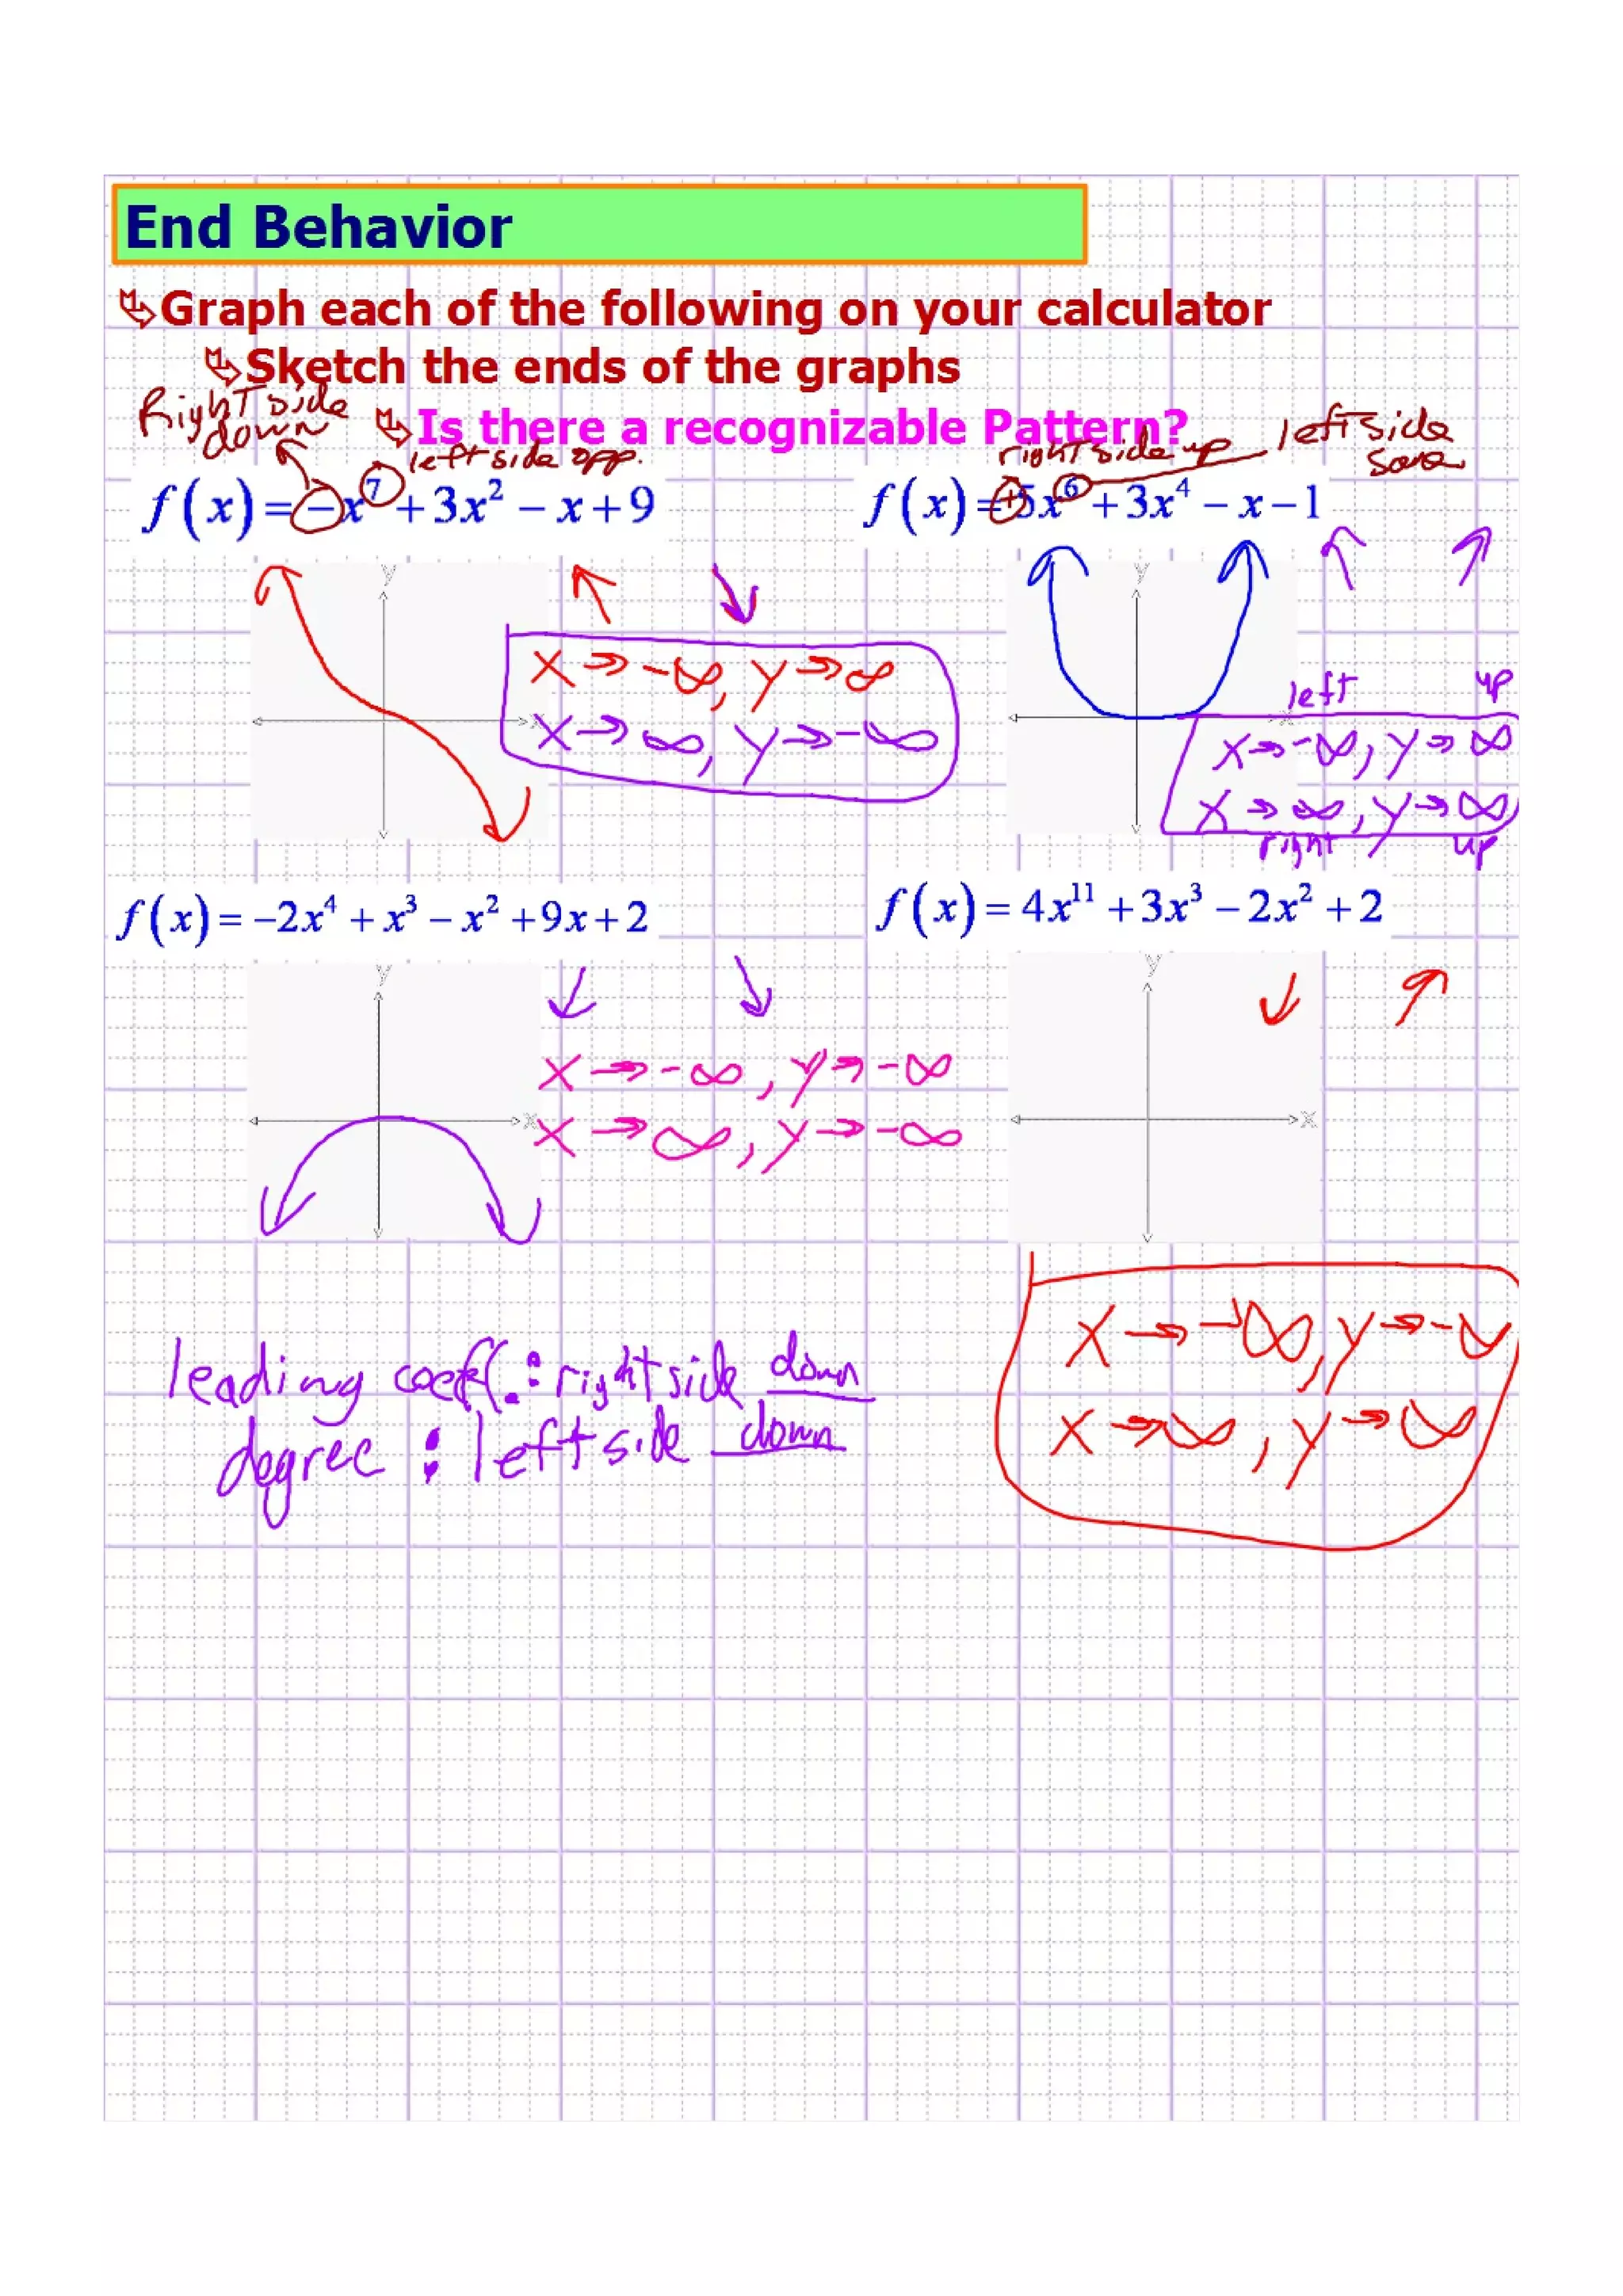 End Behavior
Graph each of the following on your calculator
Sketch the ends of the graphs
Right side
down
Is there a recognizable Pattern?
left side opp.
right side up
left side
same
f(x) = −x⁷ + 3x² − x + 9
f(x) = +5x⁶ + 3x⁴ − x − 1
y
x
x → -∞, y → ∞
x → ∞, y → -∞
y
x
left up
x → -∞, y → ∞
x → ∞, y → ∞
right up
f(x) = −2x⁴ + x³ − x² + 9x + 2
f(x) = 4x¹¹ + 3x³ − 2x² + 2
y
x
x → -∞, y → -∞
x → ∞, y → -∞
y
x
leading coeff.: right side down
degree : left side down
x → -∞, y → -∞
x → ∞, y → ∞